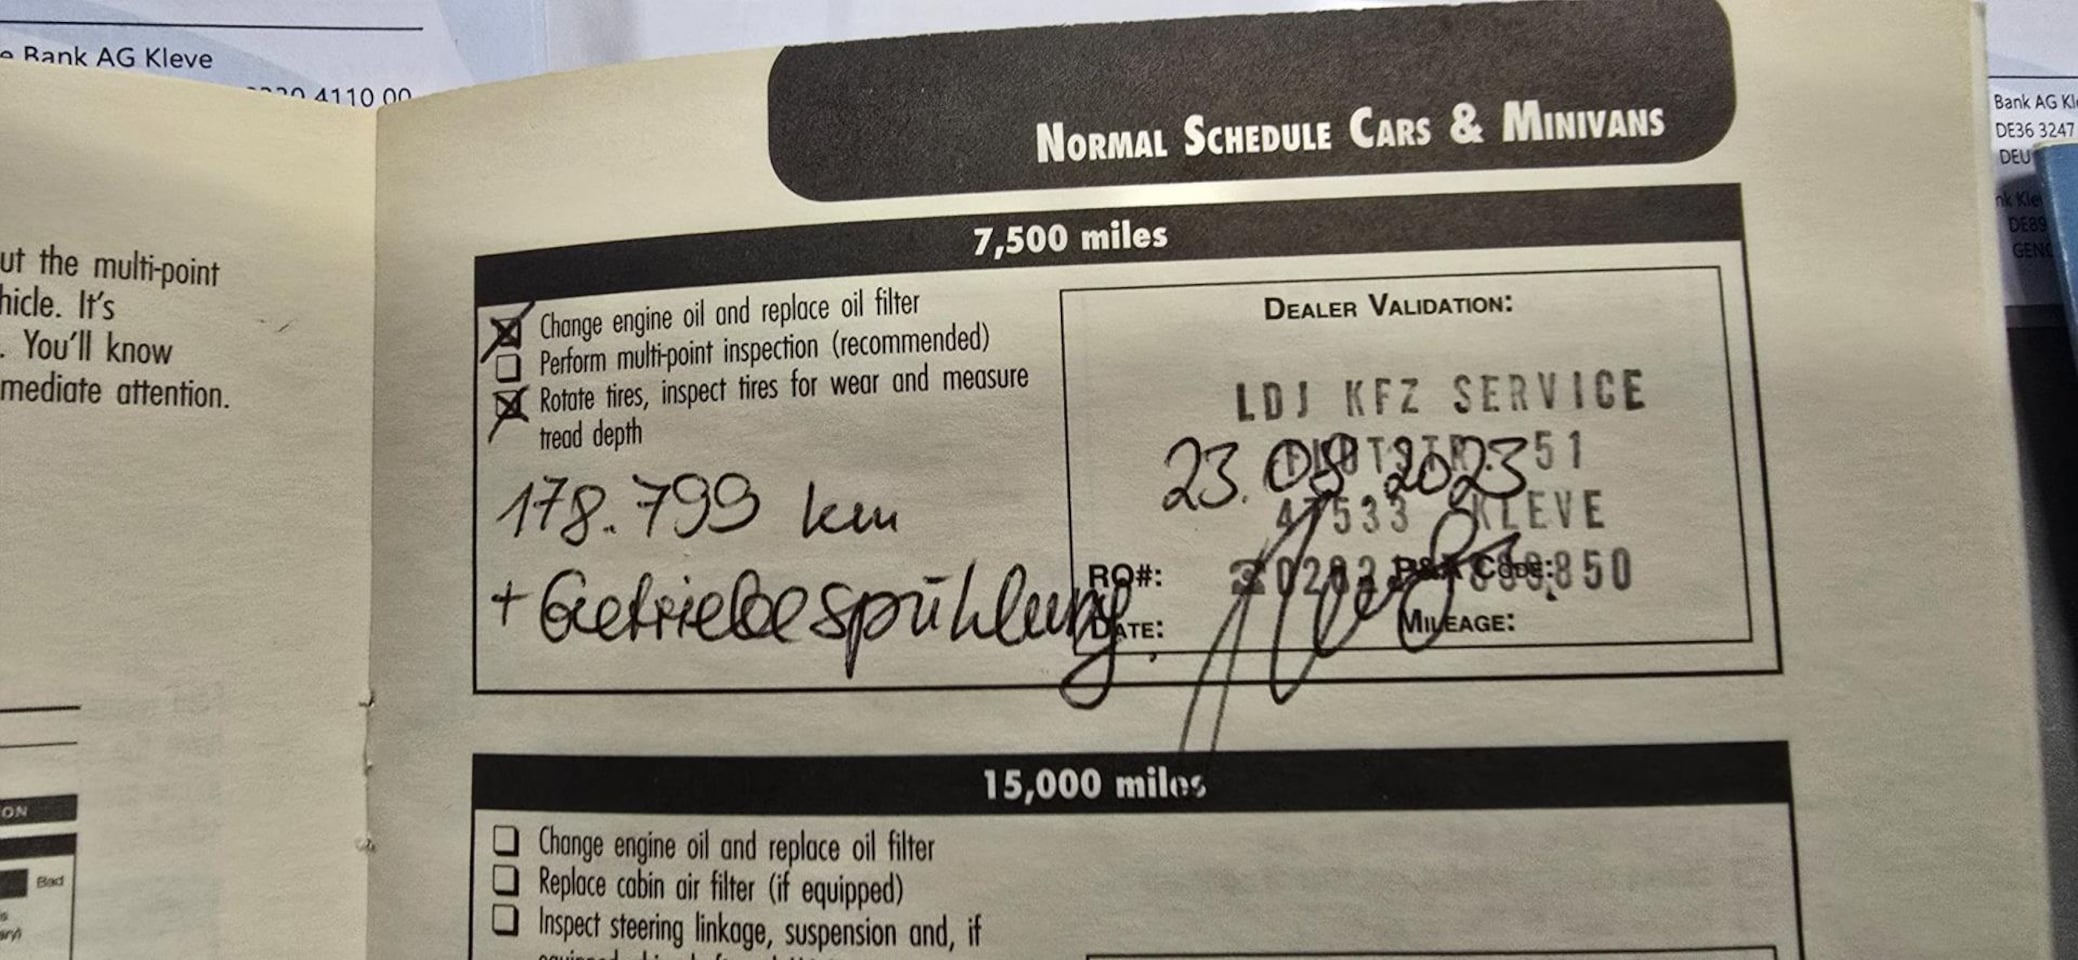 Bank AG Kleve
4110 00
Bank AG Kle
DE36 3247
DEU
DE89
NORMAL SCHEDULE CARS & MINIVANS
ut the multi-point
hicle. It's
. You'll know
mediate attention.
ON
Bad
7,500 miles
Change engine oil and replace oil filter
Perform multi-point inspection (recommended)
Rotate tires, inspect tires for wear and measure
tread depth
178.799 km
+ Getriebespühlung
DEALER VALIDATION:
LDJ KFZ SERVICE
51
23.08.2023
47533 KLEVE
850
RO#:
P&A CODE:
DATE:
MILEAGE:
15,000 miles
Change engine oil and replace oil filter
Replace cabin air filter (if equipped)
Inspect steering linkage, suspension and, if